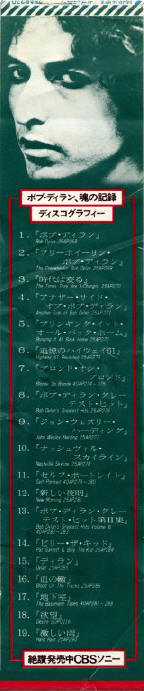 ボブ・ディラン、魂の記録
ディスコグラフィー
1.「ボブ・ディラン」
Bob Dylan 25AP268
2.「フリーホイーリン・
ボブ・ディラン」
The Freewheelin' Bob Dylan 25AP269
3.「時代は変る」
The Times They Are A-Changin' 25AP270
4.「アナザー・サイド・
オブ・ボブ・ディラン」
Another Side of Bob Dylan 25AP271
5.「ブリンギング・イット・
オール・バック・ホーム」
Bringing It All Back Home 25AP272
6.「追憶のハイウェイ61」
Highway 61 Revisited
7.「ブロンド・オン・
ブロンド」
Blonde On Blonde
8.「ボブ・ディラン・グレー
テスト・ヒット」
Bob Dylan's Greatest Hits
9.「ジョン・ウェズリー・
ハーディング」
John Wesley Harding
10.「ナッシュヴィル・
スカイライン」
Nashville Skyline
11.「セルフ・ポートレイト」
Self Portrait
12.「新しい夜明け」
New Morning
13.「ボブ・ディラン・グレー
テスト・ヒット第II集」
Bob Dylan's Greatest Hits Volume II
14.「ビリー・ザ・キッド」
Pat Garrett & Billy The Kid
15.「ディラン」
Dylan
16.「血の轍」
Blood On The Tracks
17.「地下室」
The Basement Tapes
18.「欲望」
Desire
19.「激しい雨」
Hard Rain
絶讃発売中CBSソニー